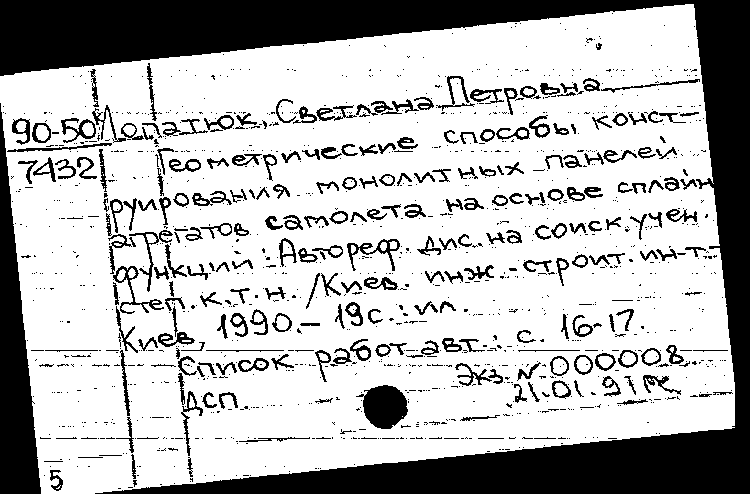 90-50 Лопатюк, Светлана Петровна
7432 Геометрические способы конст-
руирования монолитных панелей
агрегатов самолета на основе сплайн
функций : Автореф. дис. на соиск. учен.
степ. к.т.н. /Киев. инж.-строит. ин-т.-
Киев, 1990.- 19с. : ил.
Список работ авт.: с. 16-17.
Экз. № 000008
ДСП. 21.01.91
5